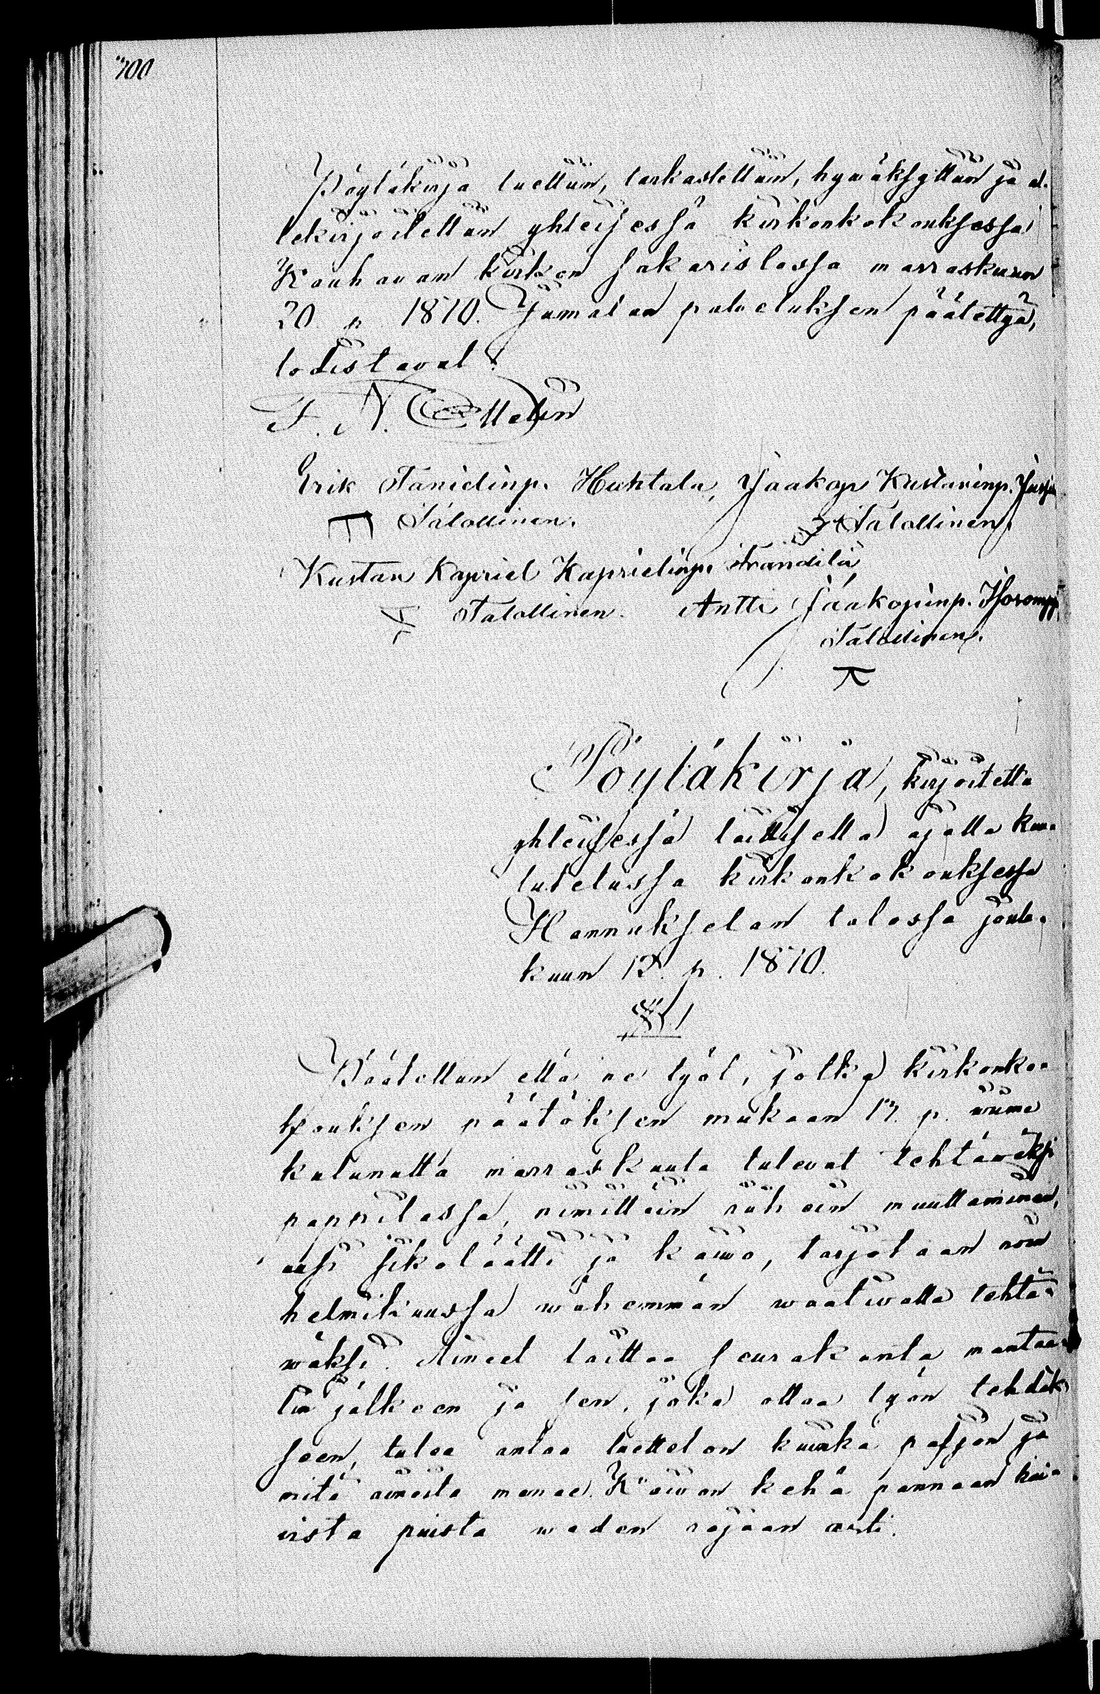 700
Pöytäkirja luettiin, tarkastettiin, hywäksyttiin ja al-
lekirjoitettiin yhteisessä kirkonkokouksessa
Kauhavan kirkon sakaristossa marraskuun
20 p. 1870. Jumalan palveluksen päätettyä,
todistavat:
F. N.
Erik Tanielinp. Huhtala, Jaakop Kustavinp.
Talollinen. Talollinen.
Kustav Kapriel Kaprielinp. Frändilä
Talollinen. Antti Jaakopinp.
Talollinen.
Pöytäkirja, kirjoitettu
yhteisessä laillisella ajalla kuu-
lutetussa kirkonkokouksessa
Hannukselan talossa joulu-
kuun 12 p. 1870.
§ 1
Päätettiin että ne työt, jotka kirkonko-
kouksen päätöksen mukaan 17. p. wiime
kulunutta marraskuuta tulevat tehtäwäksi
pappilassa, nimittäin riihen muuttaminen,
uusi sikolätti ja kaiwo, tarjotaan
helmikuussa wähemmän waatiwalle tehtä-
wäksi. Aineet laittaa seurakunta manttaa-
lin jälkeen ja sen, joka ottaa työn tehdäk-
seen, tulee antaa luettelon kuinka paljon ja
mitä aineita menee. Kaiwon kehä pannaan hir-
sistä puista weden rajaan asti.